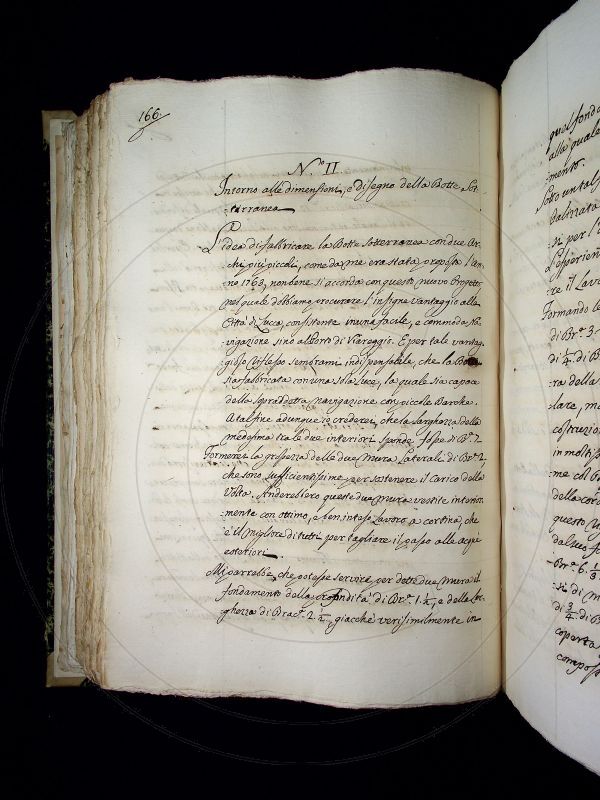 166.
N.º II
Intorno alle dimensioni, e disegno della Botte Sot-
-terranea
L'idea di fabbricare la Botte Sotterranea con due Ar-
-chi più piccoli, come da me era stata proposta l'an-
no 1768, non bene si accorda con questo nuovo Progetto,
nel quale dobbiamo procurare l'insigne vantaggio alla
Città di Lucca, consistente in una facile, e commoda Na-
vigazione sino al Porto di Viareggio. E per tale vantag-
gioso riflesso sembrami indispensabile, che la Botte
sia fabbricata con una sola Luce, la quale sia capace
della sopraddetta navigazione con piccole Barche.
A tal fine adunque io crederei, che la larghezza della
medesima tra le due interiori sponde fosse di Br.ª 7.
Formerei la grossezza delle due Mura Laterali di Br.ª 2.
che sono sufficientissime per sostenere il Carico della
Volta. Anderebbero queste due Mura vestite interior-
-mente con ottimo, e ben inteso Lavoro a cortina, che
è il migliore di tutti per tagliare il passo alle acque
esteriori.
Mi parrebbe, che potesse servire per dette due Mura il
fondamento della profondità di Br.ª 1.½, e della Lar-
ghezza di Brac.ª 2.½, giacchè verisimilmente in
quel fondo
alla quale
mento.
Sotto un tal
si per l'
re il Lavo
Formando le
di Br.ª 3.
di ¼ di B
ra della
lare, ma
costruzio
in moltiss
me col B
della cor
questo V
dal suo f
Br.ª 6.⅓
si di m
di ¾ di B
coperta
compos